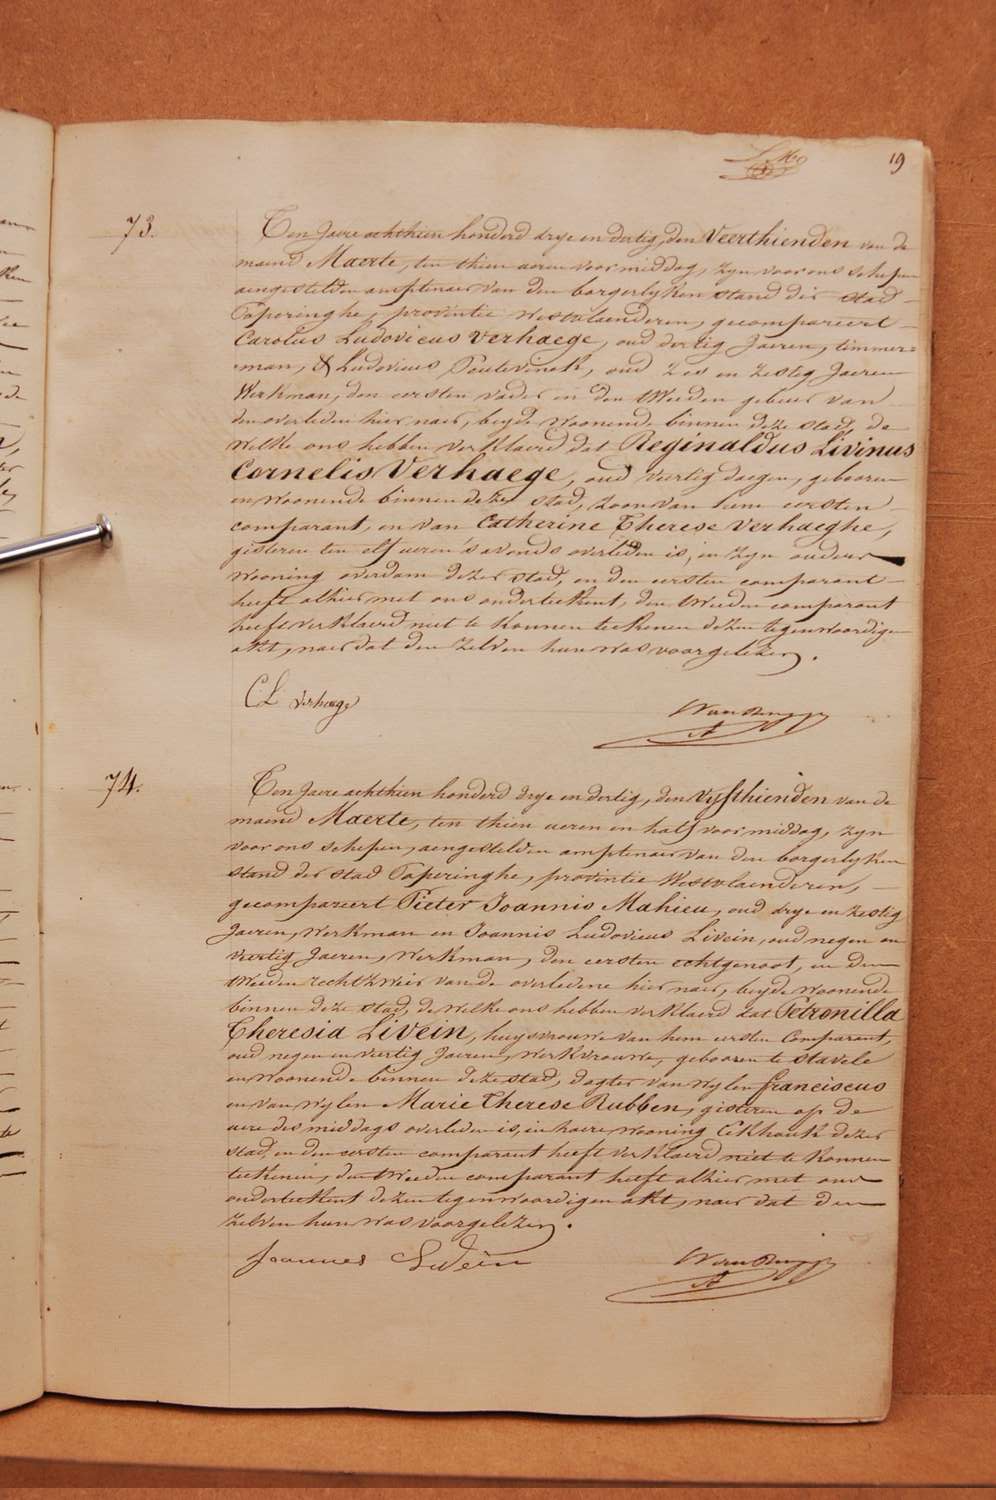 19
73.
Ten Jaere achthien honderd drye en dertig, den Veerthienden van de
maend Maerte, ten thien ueren voormiddag, zyn voor ons schepen
aengestelden amptenaer van den borgerlyken stand der stad
Poperinghe, provintie Westvlaenderen, gecompareert
Carolus Ludovicus Verhaege, oud dertig Jaeren, timmer=
=man, & Ludovicus Outevinck, oud zes en zestig Jaeren
Werkman, den eersten vader en den tweeden gebuer van
den overleden hier naer, beyde woonende binnen deze stad, de
welke ons hebben verklaerd dat Reginaldus Livinus
Cornelis Verhaege, oud veertig daegen, gebooren
en woonende binnen deze stad, zoon van hem eersten
comparant, en van Catherine Therese Verhaeghe,
gisteren ten elf ueren 's avonds overleden is, in zyn ouders
wooning overdam dezer stad, en den eersten comparant
heeft alhier met ons onderteekent, den tweeden comparant
heeft verklaerd niet te konnen teekenen dezen tegenwoordigen
akt, naer dat den zelven hun was voorgelezen.
C L Verhaege
74.
Ten Jaere achthien honderd drye en dertig, den Vyfthienden van de
maend Maerte, ten thien ueren en half voormiddag, zyn
voor ons schepen, aengestelden amptenaer van den borgerlyken
stand der stad Poperinghe, provintie Westvlaenderen,
gecompareert Pieter Joannis Mahieu, oud drye en zestig
Jaeren, Werkman en Joannis Ludovicus Livein, oud negen en
veertig Jaeren, Werkman, den eersten echtgenoot, en den
tweeden rechtzweer van de overledene hier naer, beyde woonende
binnen deze stad, de welke ons hebben verklaerd dat Petronilla
Theresia Livein, huysvrouwe van hem eersten Comparant,
oud negen en veertig Jaeren, Werkvrouwe, gebooren te Stavele
en woonende binnen deze stad, dogter van wylen franciscus
en van wylen Marie Therese Rubben, gisteren op de
uere des middags overleden is, in haere wooning Eekhouk dezer
stad, en den eersten comparant heeft verklaerd niet te konnen
teekenen, den tweeden comparant heeft alhier met ons
onderteekent dezen tegenwoordigen akt, naer dat den
zelven hun was voorgelezen.
Joannes Livein